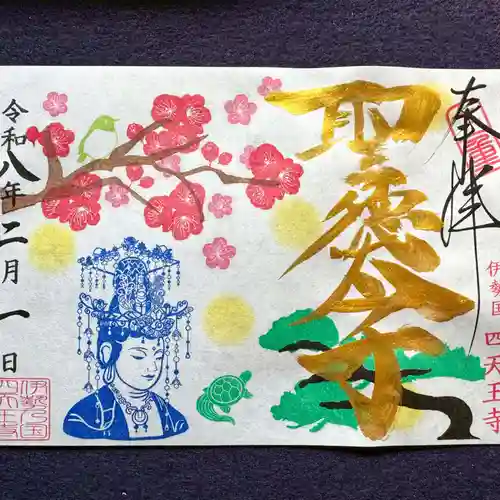 奉拝
伊勢国 四天王寺
聖徳太子
令和八年二月一日
伊勢之国
四天王寺